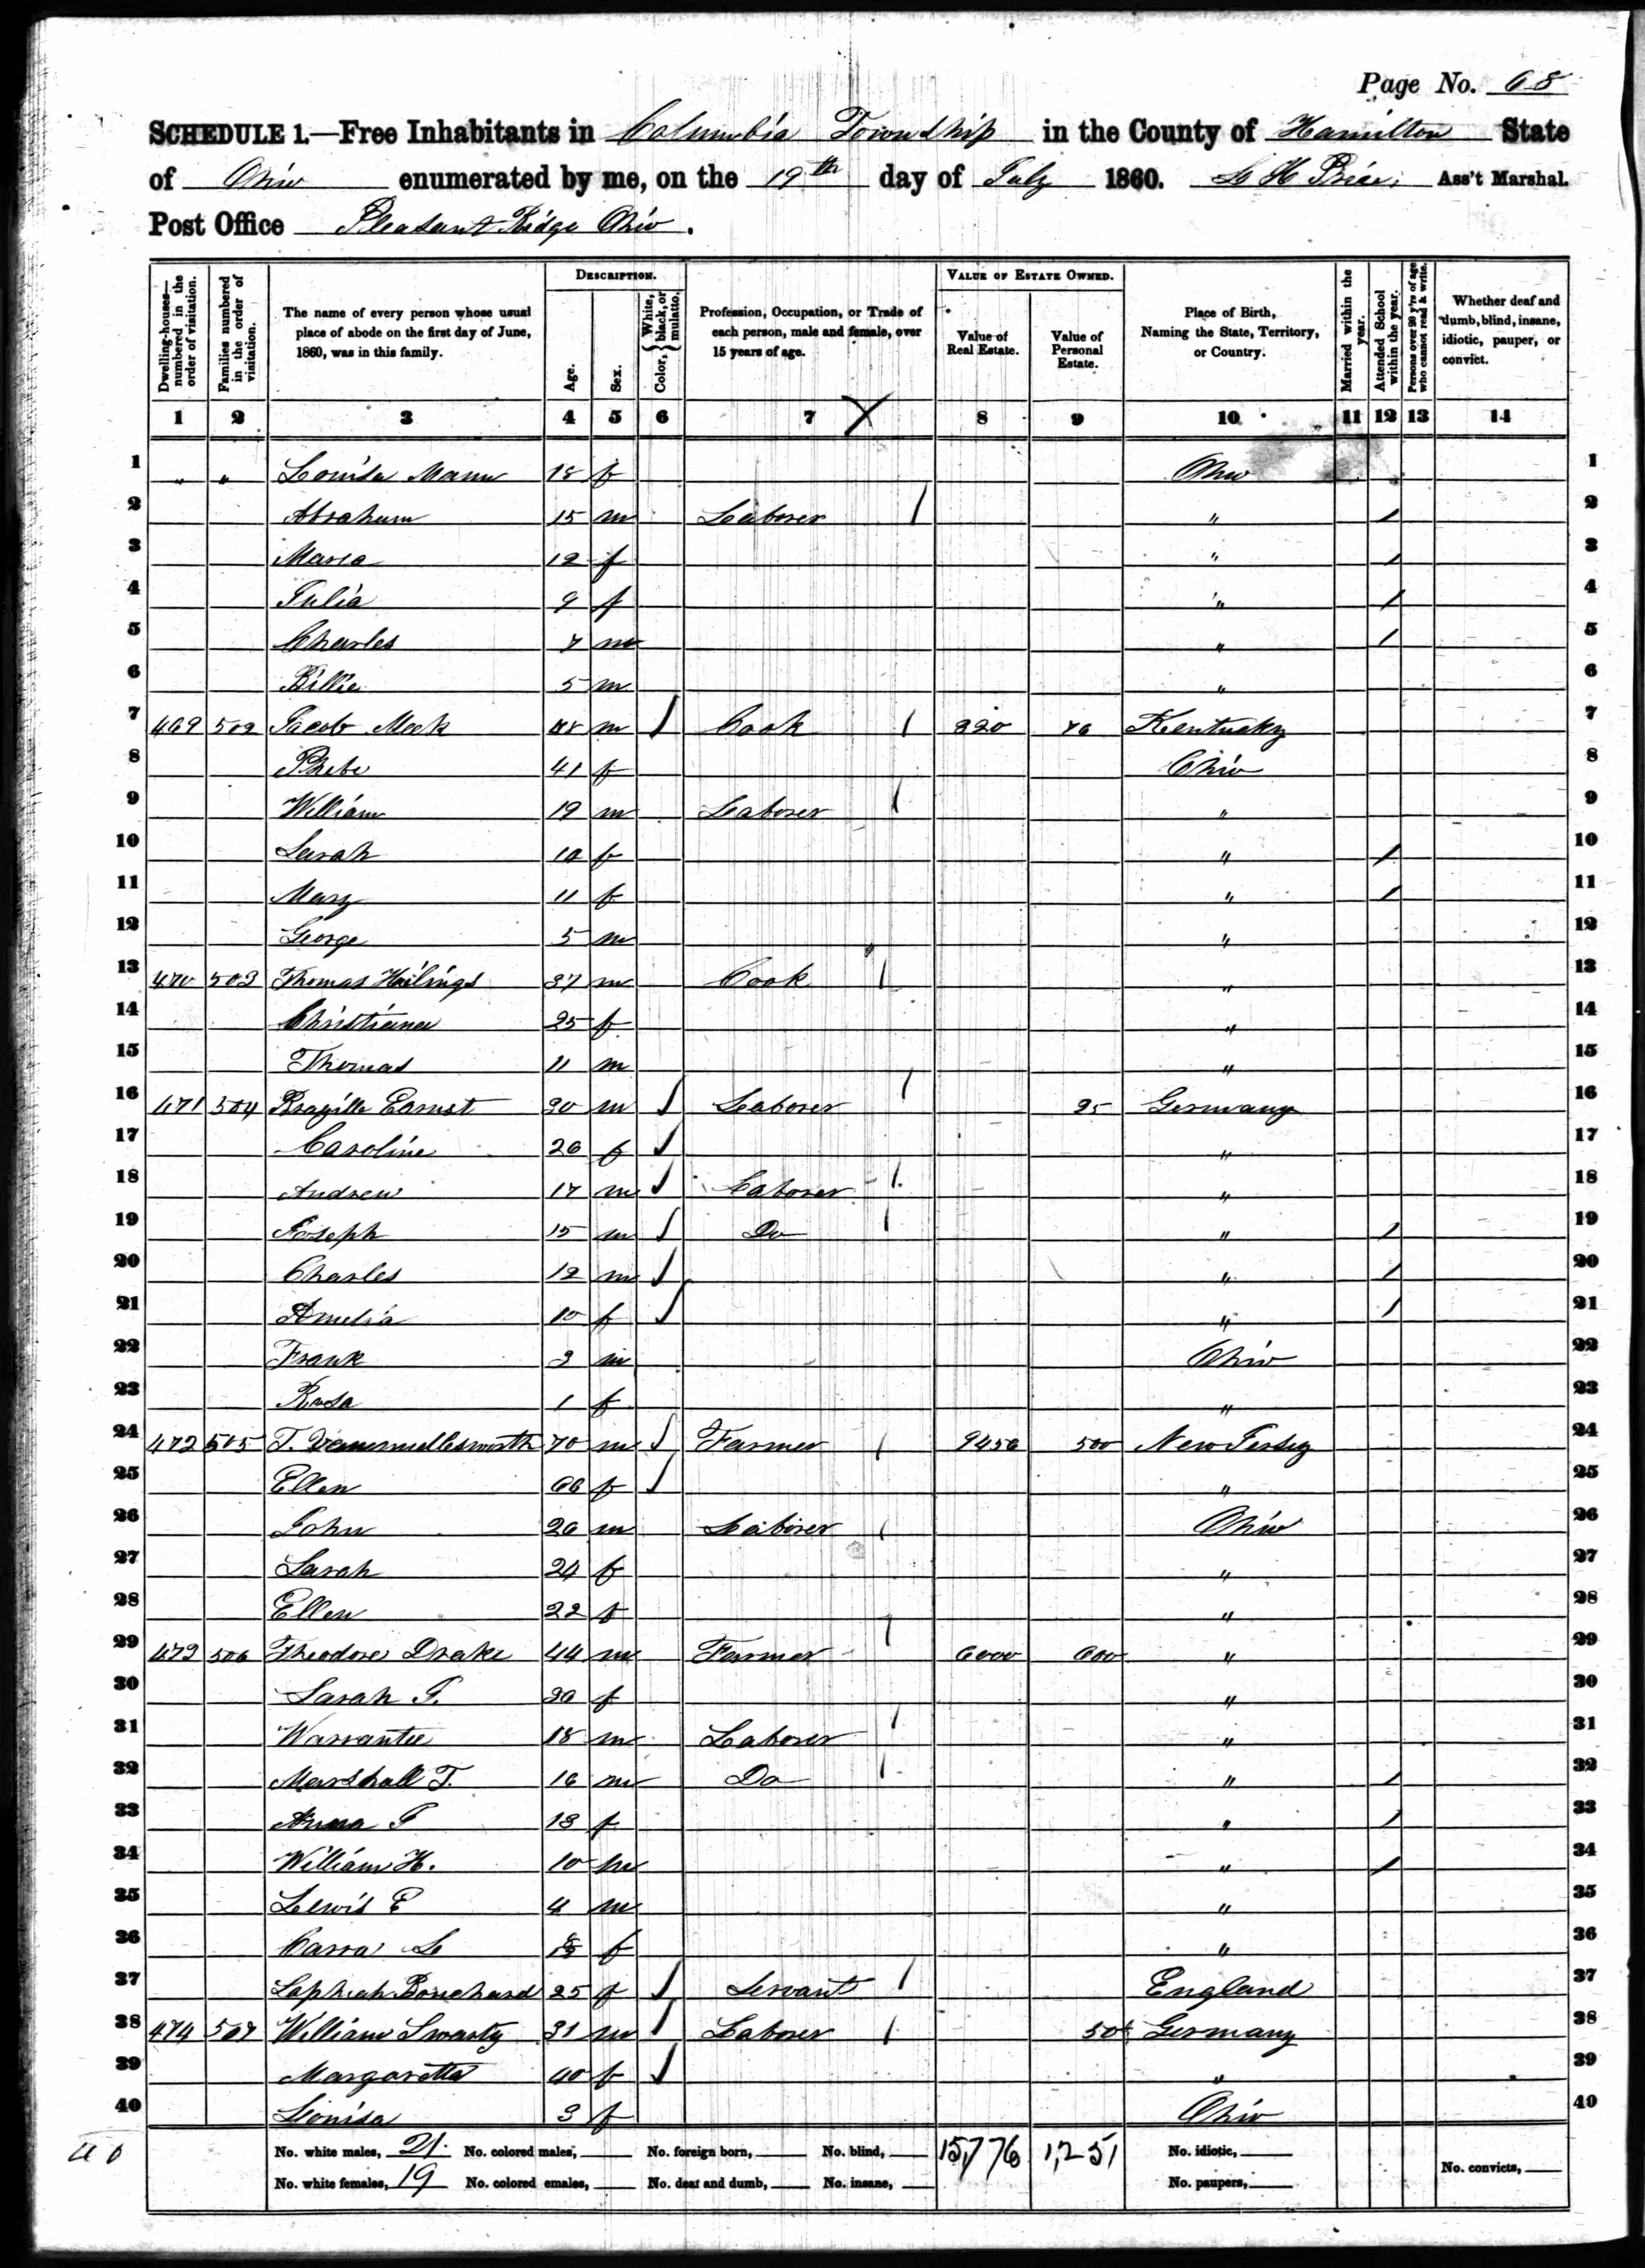 Page No. 68
SCHEDULE 1.—Free Inhabitants in Columbia Township in the County of Hamilton State
of Ohio enumerated by me, on the 19th day of July 1860. Ass't Marshal.
Post Office Pleasant Ridge Ohio.
Dwelling-houses—numbered in the order of visitation.
Families numbered in the order of visitation.
The name of every person whose usual place of abode on the first day of June, 1860, was in this family.
DESCRIPTION.
Age.
Sex.
Color, White, black, or mulatto.
Profession, Occupation, or Trade of each person, male and female, over 15 years of age.
VALUE OF ESTATE OWNED.
Value of Real Estate.
Value of Personal Estate.
Place of Birth, Naming the State, Territory, or Country.
Married within the year.
Attended School within the year.
Persons over 20 y'rs of age who cannot read & write.
Whether deaf and dumb, blind, insane, idiotic, pauper, or convict.
1 2 3 4 5 6 7 X 8 9 10 11 12 13 14
1 " " Louisa Mann 18 f Ohio 1
2 Abraham 15 m Laborer / " / 2
3 Maria 12 f " / 3
4 Julia 9 f " / 4
5 Charles 7 m " / 5
6 Billie 5 m " 6
7 469 502 Jacob Meek 48 m / Cook / Kentucky 7
8 Phebe 41 f Ohio 8
9 William 19 m Laborer / " 9
10 Sarah f " / 10
11 Mary 11 f " / 11
12 George 5 m " 12
13 470 503 Thomas Hailings 37 m Cook / " 13
14 Christiana 25 f " 14
15 Thomas 11 m " 15
16 471 504 Earnst 30 m / Laborer / Germany 16
17 Caroline 26 f / " 17
18 Andrew 17 m / Laborer / " 18
19 Joseph 15 m / Do / " / 19
20 Charles 12 m / " / 20
21 Amelia 10 f / " / 21
22 Frank 3 m Ohio 22
23 Rosa 1 f " 23
24 472 505 70 m / Farmer / 9456 500 New Jersey 24
25 Ellen 66 f / " 25
26 John 26 m Laborer / Ohio 26
27 Sarah 24 f " 27
28 Ellen 22 f " 28
29 473 506 Theodore Drake 44 m Farmer / 6000 600 " 29
30 Sarah f " 30
31 18 m Laborer / " 31
32 Marshall T. 16 m Do / " / 32
33 Anna 13 f " / 33
34 William H. 10 m " / 34
35 Lewis E 4 m " 35
36 f " 36
37 25 f / Servant / England 37
38 474 507 William Swarty 31 m / Laborer / 50 Germany 38
39 Margaretta 40 f / " 39
40 Louisa 3 f Ohio 40
40 No. white males, 21. No. colored males, No. foreign born, No. blind, 15,776 1,251 No. idiotic,
No. white females, 19 No. colored emales, No. deaf and dumb, No. insane, No. paupers, No. convicts,